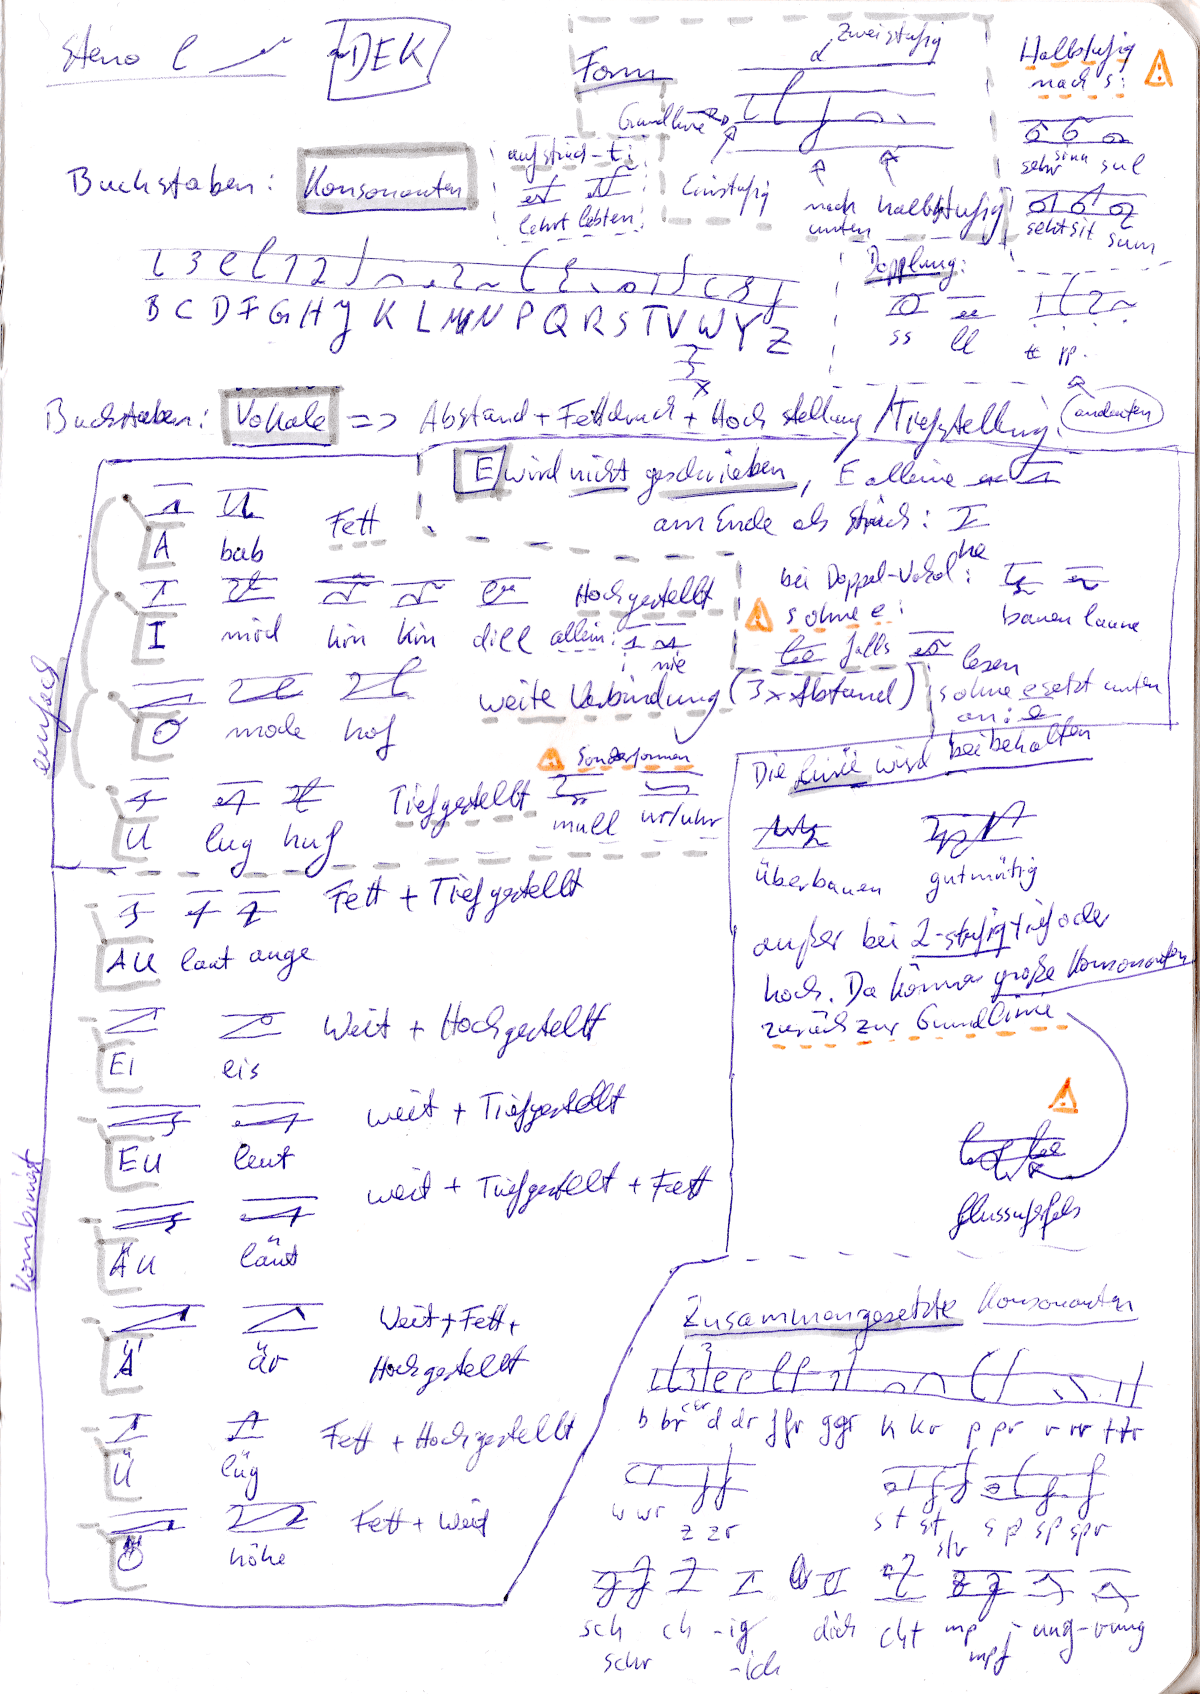 Steno
DEK
Form
Zweistufig
Halbstufig
nach s:
Grundlinie
aufstrich-t:
sehr sinn sul
Buchstaben: Konsonanten
Einstufig
nach unten
halbstufig
lehrt lebten
seht sit sum
Dopplung:
B C D F G H J K L M N P Q R S T V W Y Z
X
ss ll tt pp
Buchstaben: Vokale => Abstand + Fettdruck + Hochstellung/Tiefstellung.
andeuten
E wird nicht geschrieben, E alleine
am Ende als Strich:
he
A bab Fett
bei Doppel-Vokal:
bauen laune
Hochgestellt
I mild kin kin dill allein: nie
s ohne e:
falls lesen
s ohne e setzt unten an: e
einfach
O mode hof
weite Verbindung (3x Abstand)
Sonderformen
U lug huf Tiefgestellt
null ur/uhr
Die Linie wird beibehalten
überbauen gutmütig
außer bei 2-stufig tief oder
hoch. Da können große Konsonanten
zurück zur Grundlinie
flussaufgefels
AU laut auge Fett + Tiefgestellt
EI eis Weit + Hochgestellt
EU leut weit + Tiefgestellt
ÄU läut weit + Tiefgestellt + Fett
Kombiniert
Ä är Weit + Fett +
Hochgestellt
Ü lüg Fett + Hochgestellt
Ö höhe Fett + Weit
Zusammengesetzte Konsonanten
b br c cr d dr f fr g gr k kr p pr r rr t tr
w wr z zr
st st str sp sp spr
sch schr ch -ig -ich dich cht mp mpf ung -rung